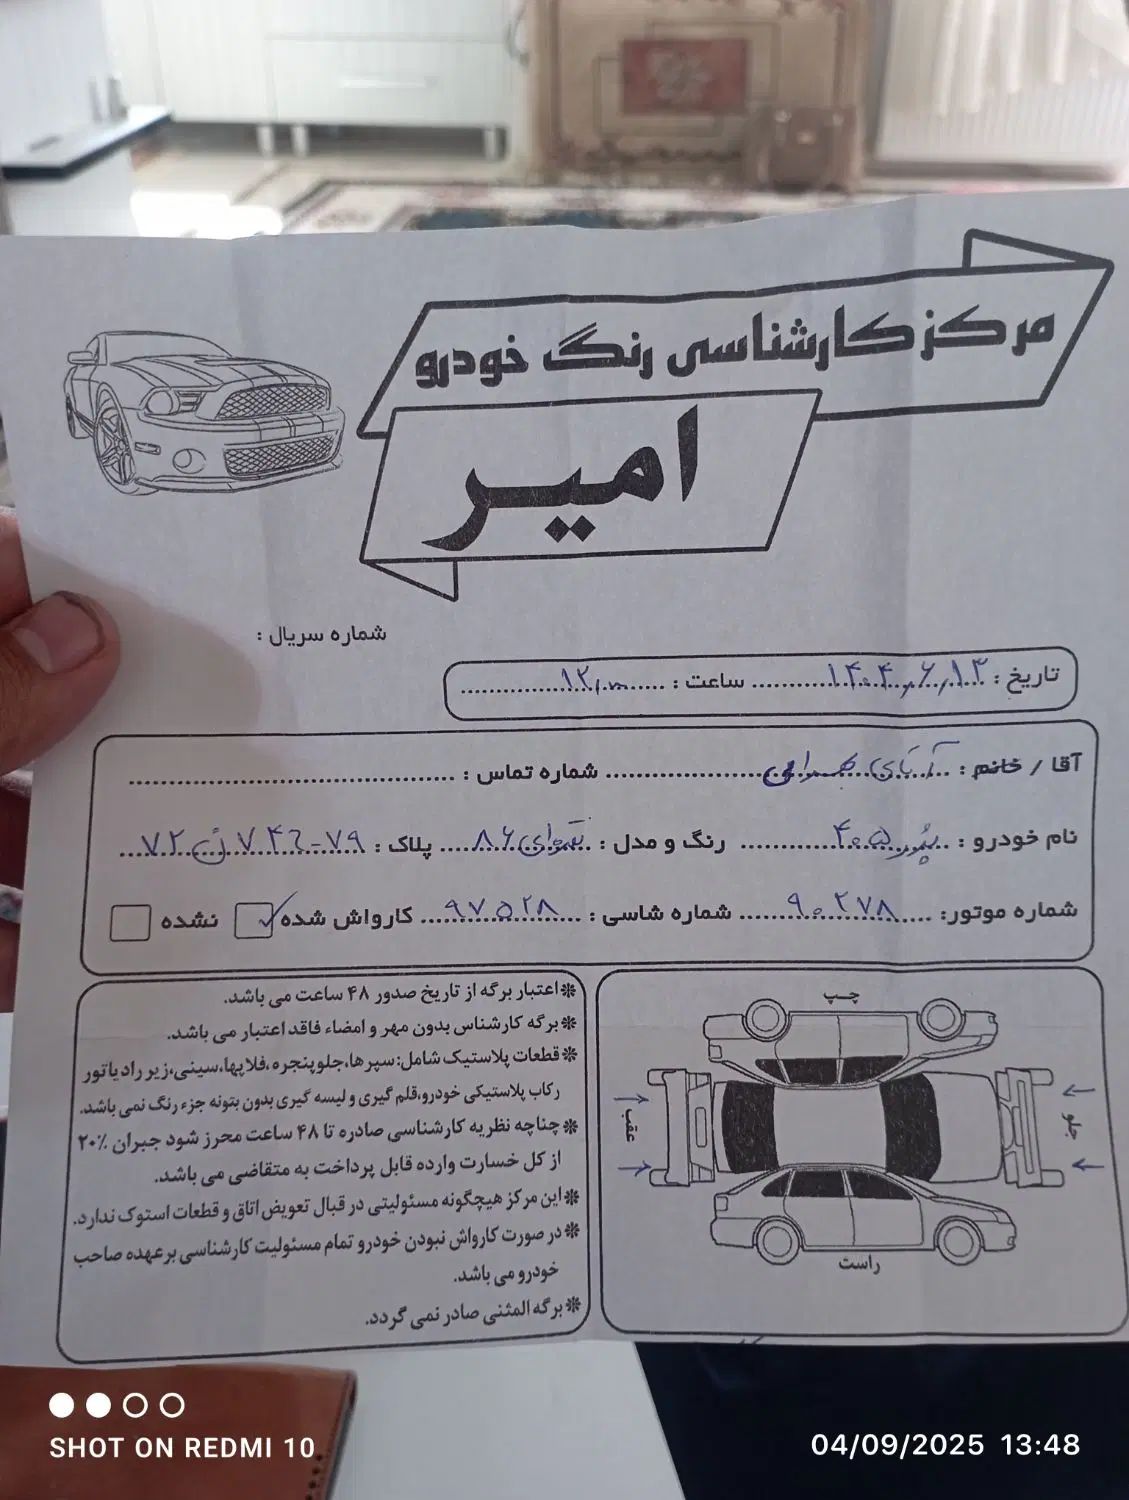 مرکز کارشناسی رنگ خودرو
امیر
شماره سریال :
تاریخ : ۱۴۰۴,۶,۱۳ ساعت : ۱۲,۳۰
آقا / خانم : آقای بهرامی شماره تماس :
نام خودرو : پژو ۴۰۵ رنگ و مدل : نقره‌ای ۸۶ پلاک : ۷۹-۷۴۶ ن ۷۲
شماره موتور: ۹۰۲۷۸ شماره شاسی : ۹۷۵۲۸ کارواش شده نشده
❊اعتبار برگه از تاریخ صدور ۴۸ ساعت می باشد.
❊برگه کارشناس بدون مهر و امضاء فاقد اعتبار می باشد.
❊قطعات پلاستیک شامل:سپرها،جلوپنجره،فلاپها،سینی،زیر رادیاتور
رکاب پلاستیکی خودرو،قلم گیری و لیسه گیری بدون بتونه جزء رنگ نمی باشد.
❊چناچه نظریه کارشناسی صادره تا ۴۸ ساعت محرز شود جبران ۲۰٪
از کل خسارت وارده قابل پرداخت به متقاضی می باشد.
❊این مرکز هیچگونه مسئولیتی در قبال تعویض اتاق و قطعات استوک ندارد.
❊در صورت کارواش نبودن خودرو تمام مسئولیت کارشناسی برعهده صاحب
خودرو می باشد.
❊برگه المثنی صادر نمی گردد.
چپ
جلو
عقب
راست
SHOT ON REDMI 10
04/09/2025 13:48